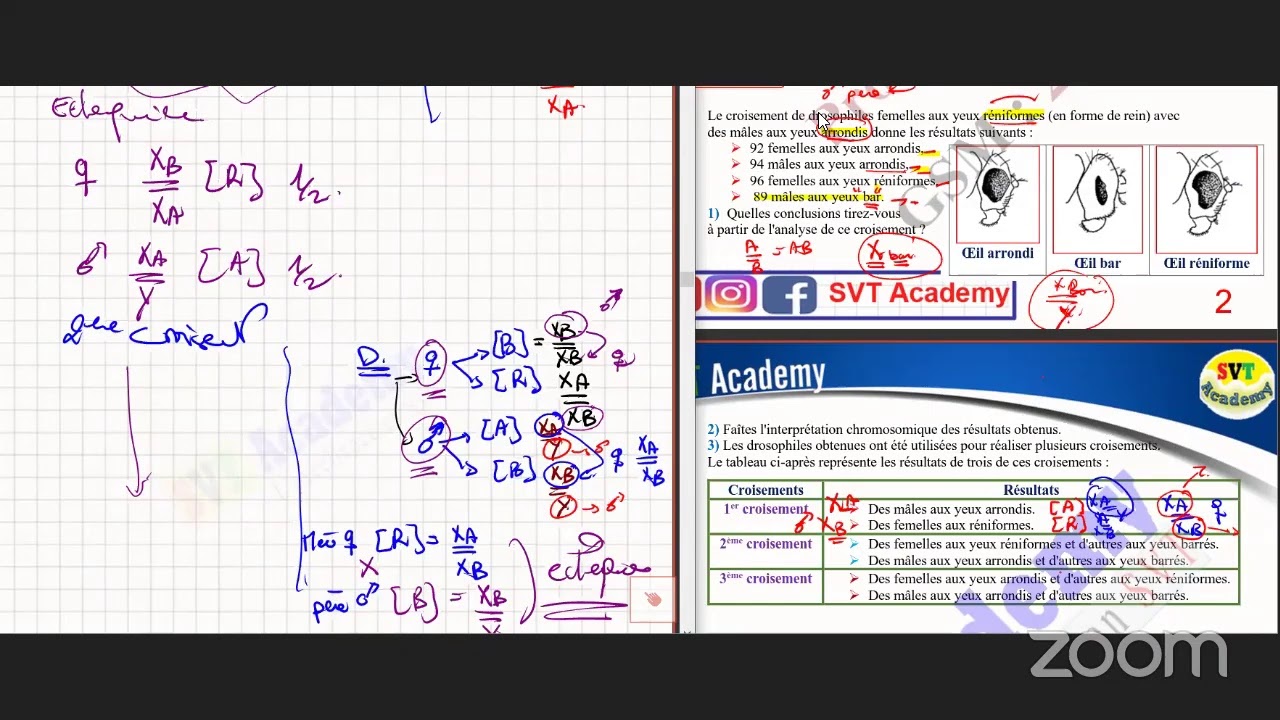 Echequier
♀ XB/XA [R] 1/2.
♂ XA/Y [A] 1/2.
2ème croisent
D. ♀ [B] = XB/XB ♂ ♀
[R] XA/XB
♂ [A] XA/Y → ♂
[B] XB/Y → ♂ ♀ XA/XB
Mère ♀ [R] = XA/XB
X
père ♂ [B] = XB/Y
echequier
XA
♂ père
Le croisement de drosophiles femelles aux yeux réniformes (en forme de rein) avec
des mâles aux yeux arrondis donne les résultats suivants :
➢ 92 femelles aux yeux arrondis,
➢ 94 mâles aux yeux arrondis,
➢ 96 femelles aux yeux réniformes,
➢ 89 mâles aux yeux bar.
1) Quelles conclusions tirez-vous
à partir de l'analyse de ce croisement ?
A/B = AB
X bar
Œil arrondi
Œil bar
Œil réniforme
GSM:
SVT Academy
2
Academy
SVT
Academy
2) Faîtes l'interprétation chromosomique des résultats obtenus.
3) Les drosophiles obtenues ont été utilisées pour réaliser plusieurs croisements.
Le tableau ci-après représente les résultats de trois de ces croisements :
Croisements Résultats
1er croisement
➢ Des mâles aux yeux arrondis. [A] XA
➢ Des femelles aux réniformes. [R] XA/XB
♂ XA XB
XA/XB ♀
2ème croisement
➢ Des femelles aux yeux réniformes et d'autres aux yeux barrés.
➢ Des mâles aux yeux arrondis et d'autres aux yeux barrés.
3ème croisement
➢ Des femelles aux yeux arrondis et d'autres aux yeux réniformes.
➢ Des mâles aux yeux arrondis et d'autres aux yeux barrés.
zoom